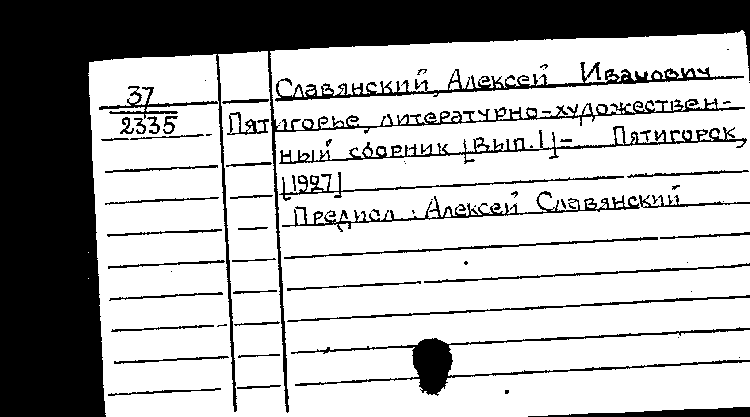 Славянский, Алексей Иванович
37
2335
Пятигорье, литературно-художествен-
ный сборник [Вып.1]- Пятигорск,
[1927]
Предисл.: Алексей Славянский